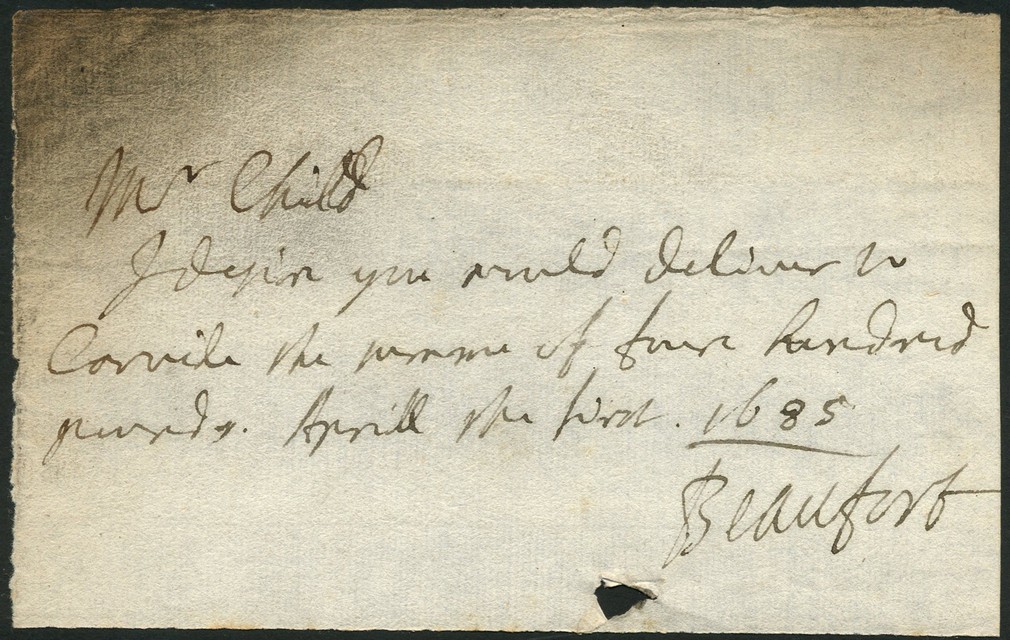 Mr Child
I desire you would deliver to
Corvile the summe of four hundred
pounds. Aprill the first. 1685
Beaufort